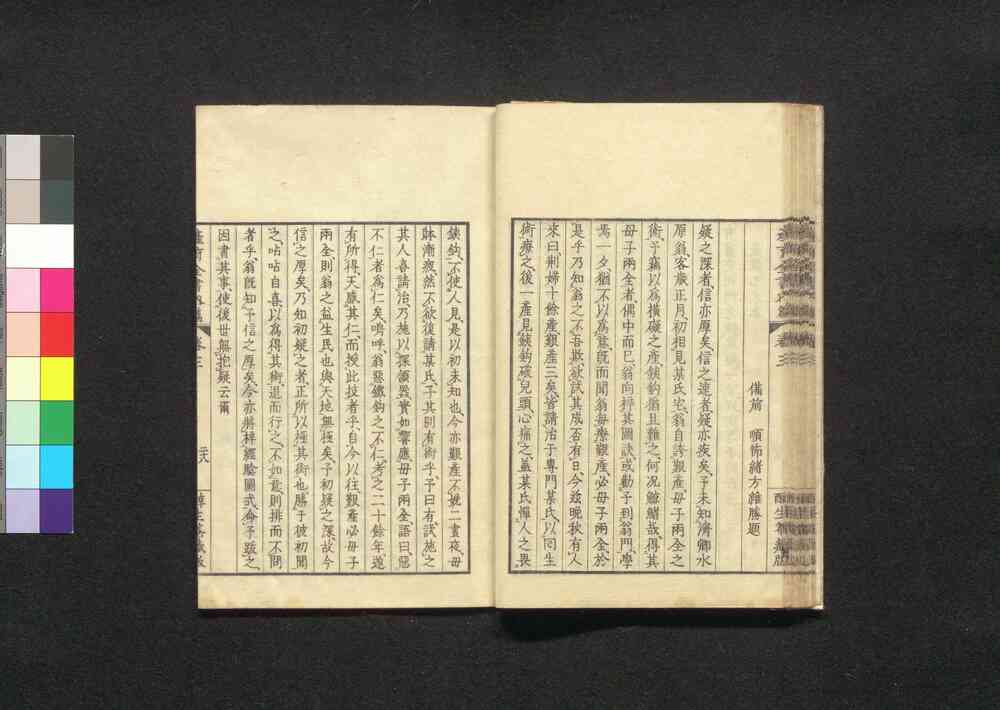 備前 順怖緒方維勝題
疑之深者、信亦厚矣、信之速者、疑亦疾矣、予未知濟卿水
原翁、客歲正月、初相見某氏宅、翁自誇艱產母子兩全之
術、予竊以爲橫礙之產、銕鈎猶且難之、何况鱠鰭哉、得其
母子兩全者、偶中而已、翁向辨其圖訣、或勸予到翁門、學
焉一夕、猶不以爲慈、既而聞翁每療艱產、必母子兩全、於
是乎乃知翁之不吾欺、欲試其成否有日、今茲晩秋、有人
來曰、荆婦十餘產、艱產三矣、皆請治于專門某氏、以回生
術療之後、一產見銕鈎破兒頭、心痛之、蓋某氏憚人之畏
銕鈎、不使人見、是以初未知也、今亦艱產不娩二晝夜、母
躰漸疲、然不欲復請某氏、子其別有術乎、予曰、有、試施之
其人喜請治、乃施以探頷器、實如響應、母子兩全、語曰、惡
不仁者爲仁矣、嗚呼、翁惡鐵鈎之不仁、考之二十餘年、遂
有所得、天感其仁、而授此技者乎、自今以往、艱產必母子
兩全、則翁之益生民也、與天地無極矣、予初疑之深、故今
信之厚矣、乃知初疑之者、正所以極其術也、勝于彼初聞
之、呫呫自喜、以爲得其術、退而行之、不如意、則排而不問
者乎、翁既知予信之厚矣、今亦將梓經驗圖式、命予跋之、
因書其事、使後世無抱疑云爾
產育全書內篇 卷三 二六